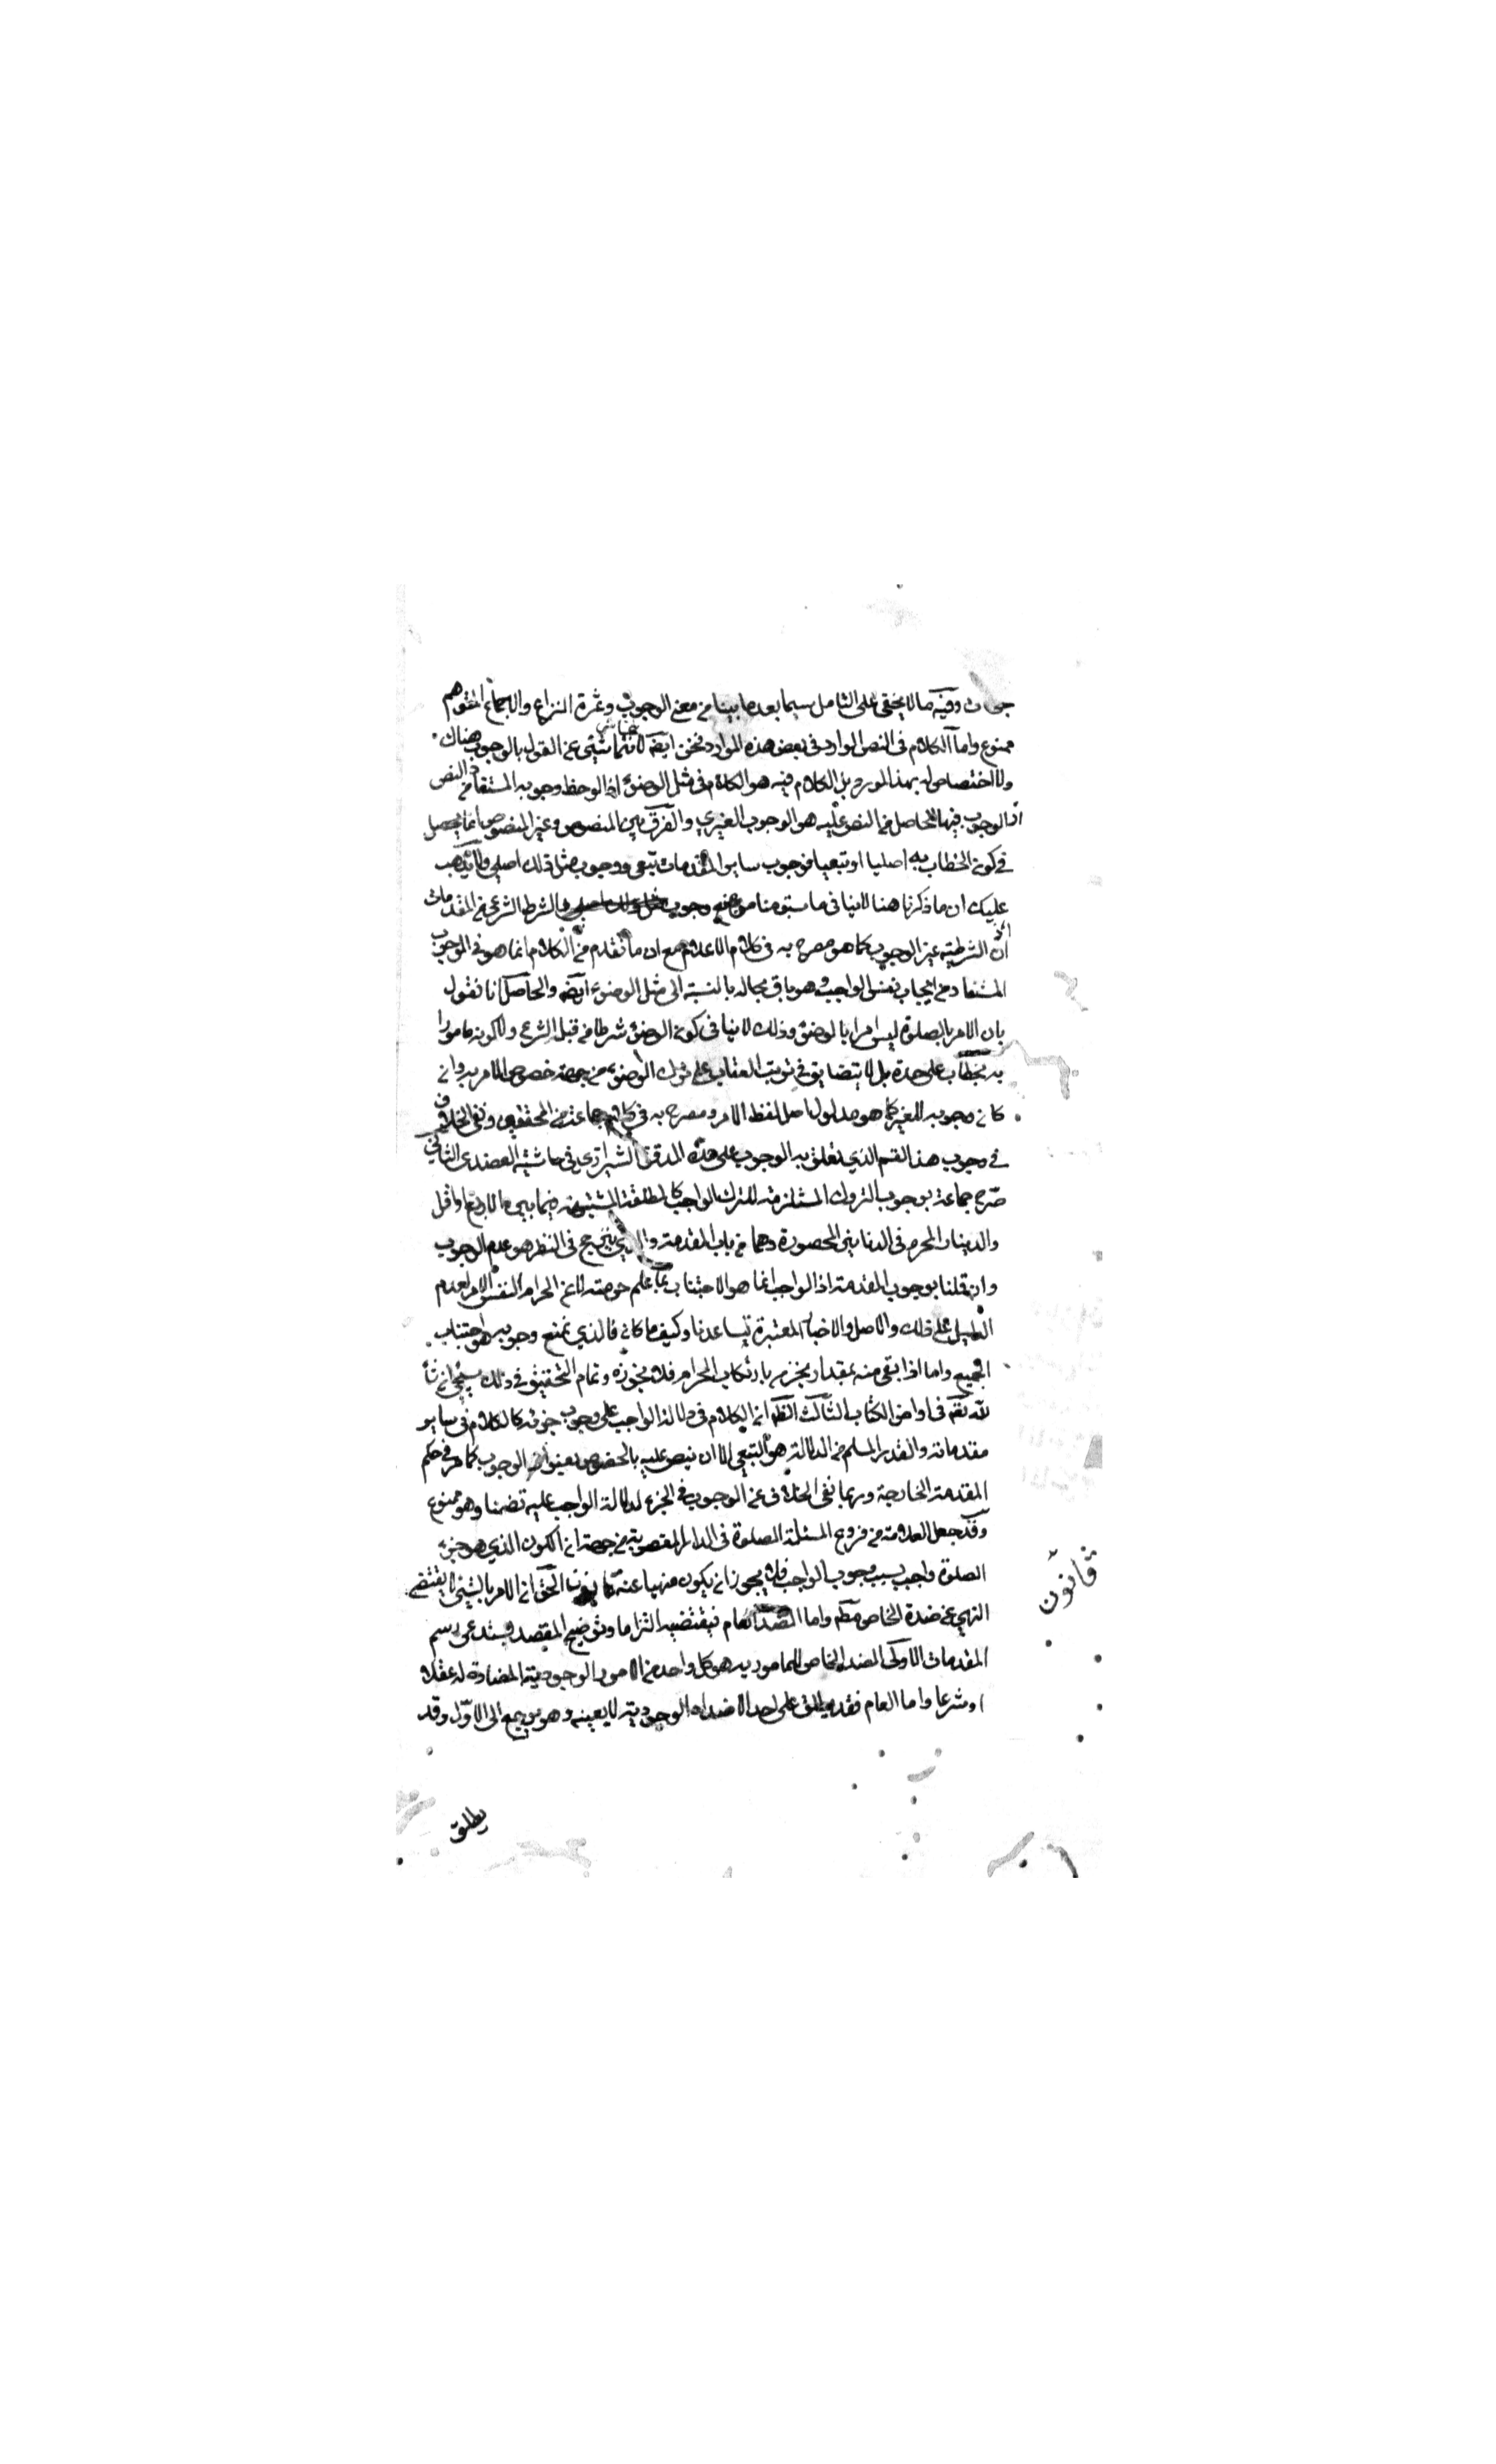 وفيه ما لا يخفى على المتأمل سيما بعد ما بينا من معنى الوجوب وثمرة النزاع والاجماع المتوهم
ممنوع واما الكلام في النص الوارد في بعض هذه الموارد فنحن ايضا لا نتحاشى عن القول بالوجوب هناك
ولا اختصاص له بهذا المورد بل الكلام فيه هو الكلام في مثل الوضوء اذا لوحظ وجوبه المستفاد من النص
اذ الوجوب فيها الحاصل من النص عليه هو الوجوب الغيري والفرق بين المنصوص وغير المنصوص انما يحصل
في كون الخطاب به اصليا او تبعيا فوجوب ساير المقدمات تبعي ووجوب مثل ذلك اصلي ولا يذهب
عليك ان ما ذكرنا هنا لا ينافي ما سبق منا من وجوب الشرط الشرعي من المقدمات
اذ الشرطية غير الوجوب كما هو مصرح به في كلام الاعلام مع ان ما تقدم من الكلام انما هو في الوجوب
المستفاد من ايجاب نفس الواجب وهو باق بحاله بالنسبة الى مثل الوضوء ايضا والحاصل انا نقول
بان الامر بالصلوة ليس امرا بالوضوء وذلك لا ينافي كون الوضوء شرطا من قبل الشرع ولا كونه مامورا
به بخطاب على حدة بل لا يتضايق في ثبوت العقاب على ترك الوضوء من جهة خصوص الامر به وان
كان وجوبه للغير كما هو مدلول اصل لفظ الامر ومصرح به في كلام جماعة من المحققين ونفى الخلاف
في وجوب هذا القسم الذي تعلق به الوجوب على حدة المدقق الشيرازي في حاشية العضدي الثاني
صرح جماعة بوجوب التروك المستلزمة للترك الواجب كالمطلقة المشتبهة فيما بين ما الاربع او اقل
والدينار المحرم في الدنانير المحصورة وهما من باب المقدمة والذي يترجح في النظر هو عدم الوجوب
وان قلنا بوجوب المقدمة اذ الواجب انما هو الاجتناب عما علم حرمته لا عن الحرام النفس الامر لعدم
الدليل على ذلك والاصل والاخبار المعتبرة تساعدنا وكيف ما كان فالذي نمنع وجوبه هو اجتناب
الجميع واما اذا بقي منه بمقدار يجزم بارتكاب الحرام فلا نجوزه وتمام التحقيق في ذلك سيجئ انشا
لله تعالى في اواخر الكتاب الثالث الظاهر ان الكلام في دلالة الواجب على وجوب جزئه كالكلام في ساير
مقدماته والقدر المسلم من الدلالة هو التبعي الا ان ينص عليه بالخصوص بعنوان الوجوب كما مر في حكم
المقدمة الخارجة وربما نفى الخلاف عن الوجوب في الجزء لدلالة الواجب عليه تضمنا وهو ممنوع
وقد جعل العلامة من فروع المسئلة الصلوة في الدار المغصوبة من جهة ان الكون الذي هو جزء
الصلوة واجب بسبب وجوب الواجب فلا يجوز ان يكون منهيا عنه قانون الحق ان الامر بالشيئ لا يقتضي
النهي عن ضده الخاص مطم واما الضد العام فيقتضيه التزاما وتوضيح المقصد يستدعى رسم
المقدمات الاولى الضد الخاص للمامور به هو كل واحد من الامور الوجودية المضادة له عقلا
او شرعا واما العام فقد يطلق على احد الاضداد الوجودية لا بعينه وهو يرجع الى الاول وقد
قانون
يطلق